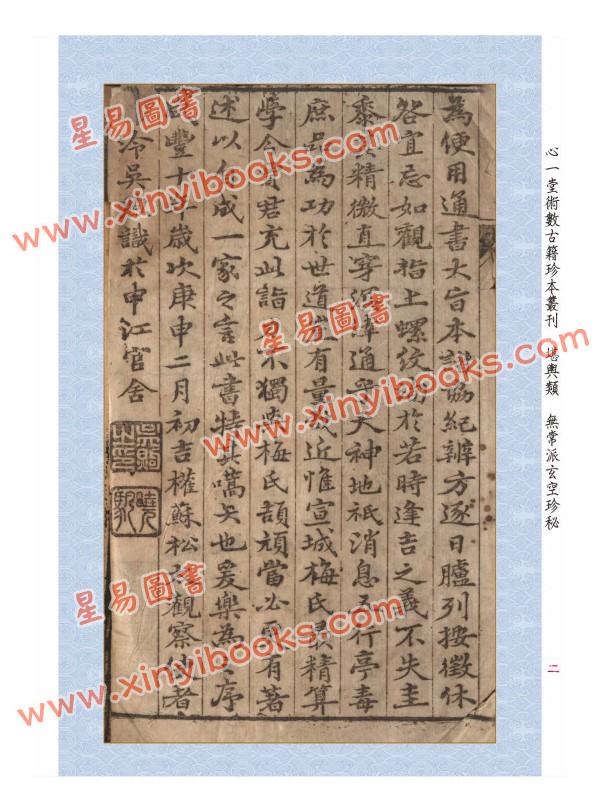 心一堂術數古籍珍本叢刊 堪輿類 無常派玄空珍秘
二
為便用通書大旨本諸協紀辨方逐日臚列按徵休
咎宜忌如觀指上螺紋於若時逢吉之義不失圭
黍精微直穿通天神地祇消息五行亭毒
庶品為功於世道豈有量哉近惟宣城梅氏最精算
學今君充此詣不獨與梅氏頡頏當必更有著
述以自成一家之言此書特其嚆矢也爰樂為序
豐十年歲次庚申二月初吉權蘇松觀察使者
吳識於申江官舍
星易圖書
www.xinyibooks.com
星易圖書
www.xinyibooks.com
星易圖書
www.xinyibooks.com